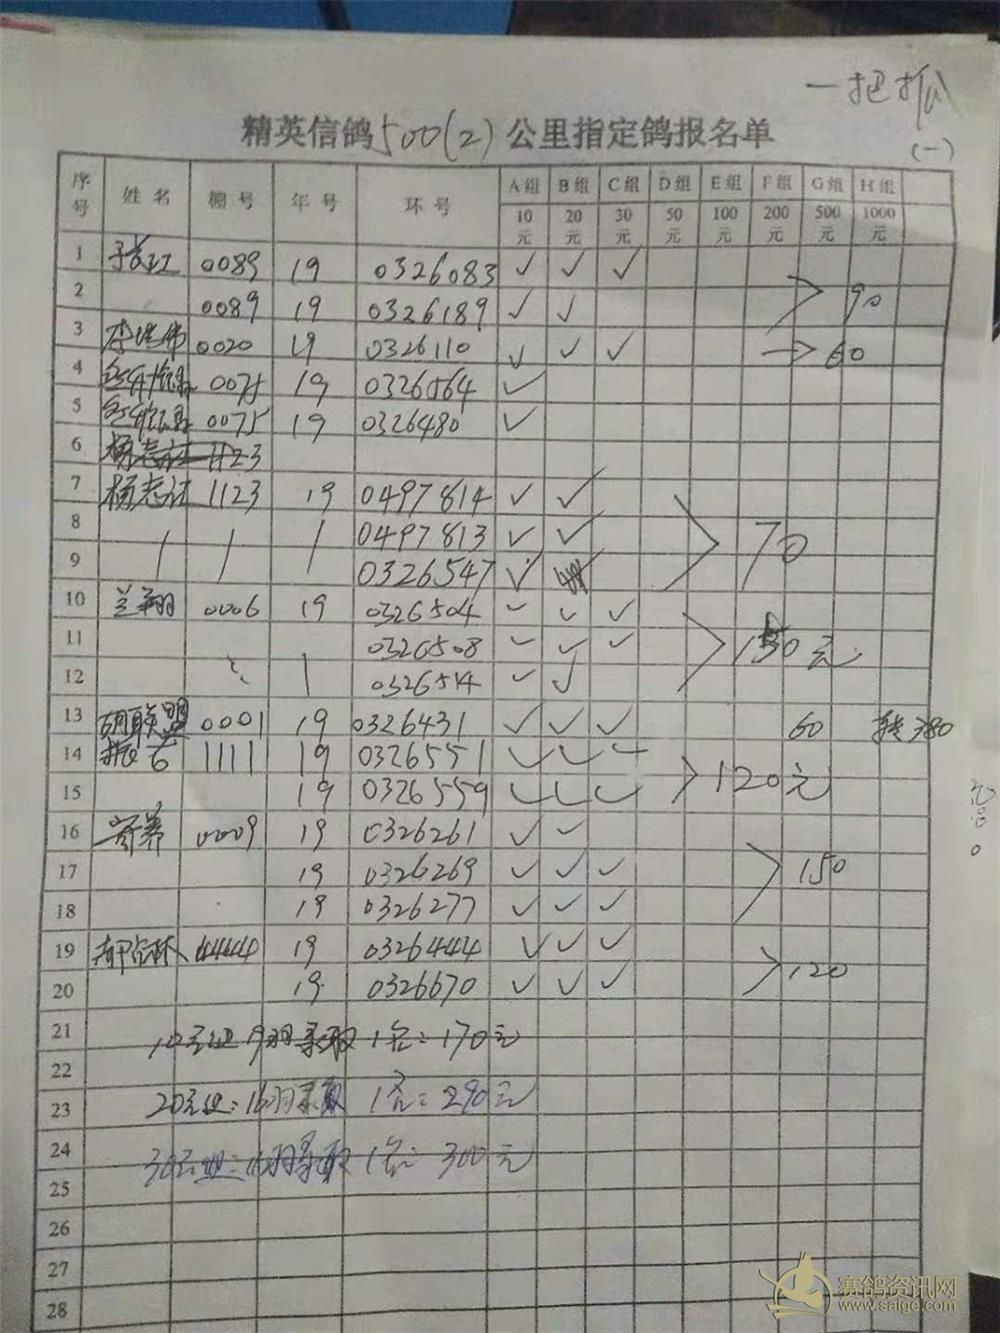 一把抓
精英信鸽500(2)公里指定鸽报名单
(一)
序号 姓名 棚号 年号 环号 A组 B组 C组 D组 E组 F组 G组 H组
10元 20元 30元 50元 100元 200元 500元 1000元
1 0089 19 0326083 ✓ ✓ ✓
2 0089 19 0326189 ✓ ✓ 90
3 0020 19 0326110 ✓ ✓ ✓ → 60
4 0075 19 0326564 ✓
5 0075 19 0326480 ✓
6 杨志 1123
7 杨志 1123 19 0497814 ✓ ✓
8 0497813 ✓ ✓ 70
9 0326547 ✓
10 兰翔 0006 19 0326504 ✓ ✓ ✓
11 0326508 ✓ ✓ ✓ 元
12 0326514 ✓ ✓
13 联盟 0001 19 0326431 ✓ ✓ ✓ 60 780
14 1111 19 0326551 ✓ ✓ ✓
15 19 0326559 ✓ ✓ ✓ 120元
16 寄养 0009 19 0326261 ✓ ✓
17 19 0326269 ✓ ✓ ✓ 150
18 19 0326277 ✓ ✓ ✓
19 4444 19 0326444 ✓ ✓ ✓
20 19 0326670 ✓ ✓ ✓ 120
21 10元组 19羽录取1名:170元
22
23 20元组:16羽录取 1名:290元
24 30元组: 羽录取 1名: 300元
25
26
27
28
赛鸽资讯网
www.saige.com